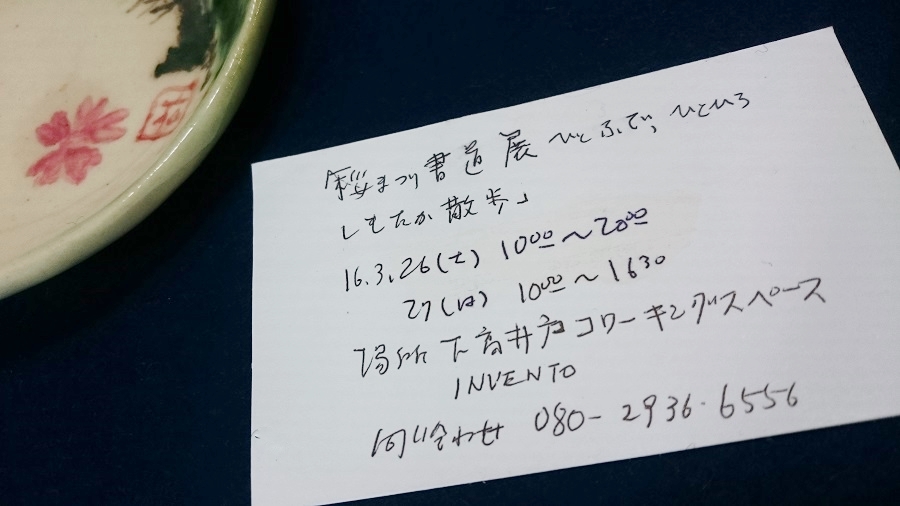 桜まつり書道展 ひとふで、ひといろ
しもたか散歩」
16.3.26(土) 1000〜2000
27(日) 1000〜1630
場所 下高井戸コワーキングスペース
INVENTO
問い合わせ 080-2936-6556